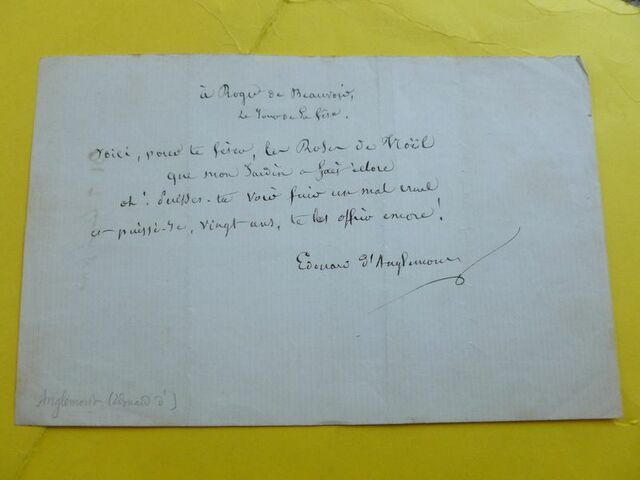 à Roger de Beauvoir,
le Jour de sa fête.
Voici, pour te fêter, les Roses de Noël
que mon Jardin a fait éclore
oh! Puisses-tu voir fuir un mal cruel
et puissé-Je, vingt ans, te les offrir encore!
Edouard d'Anglemont
Anglemont (Edouard d')